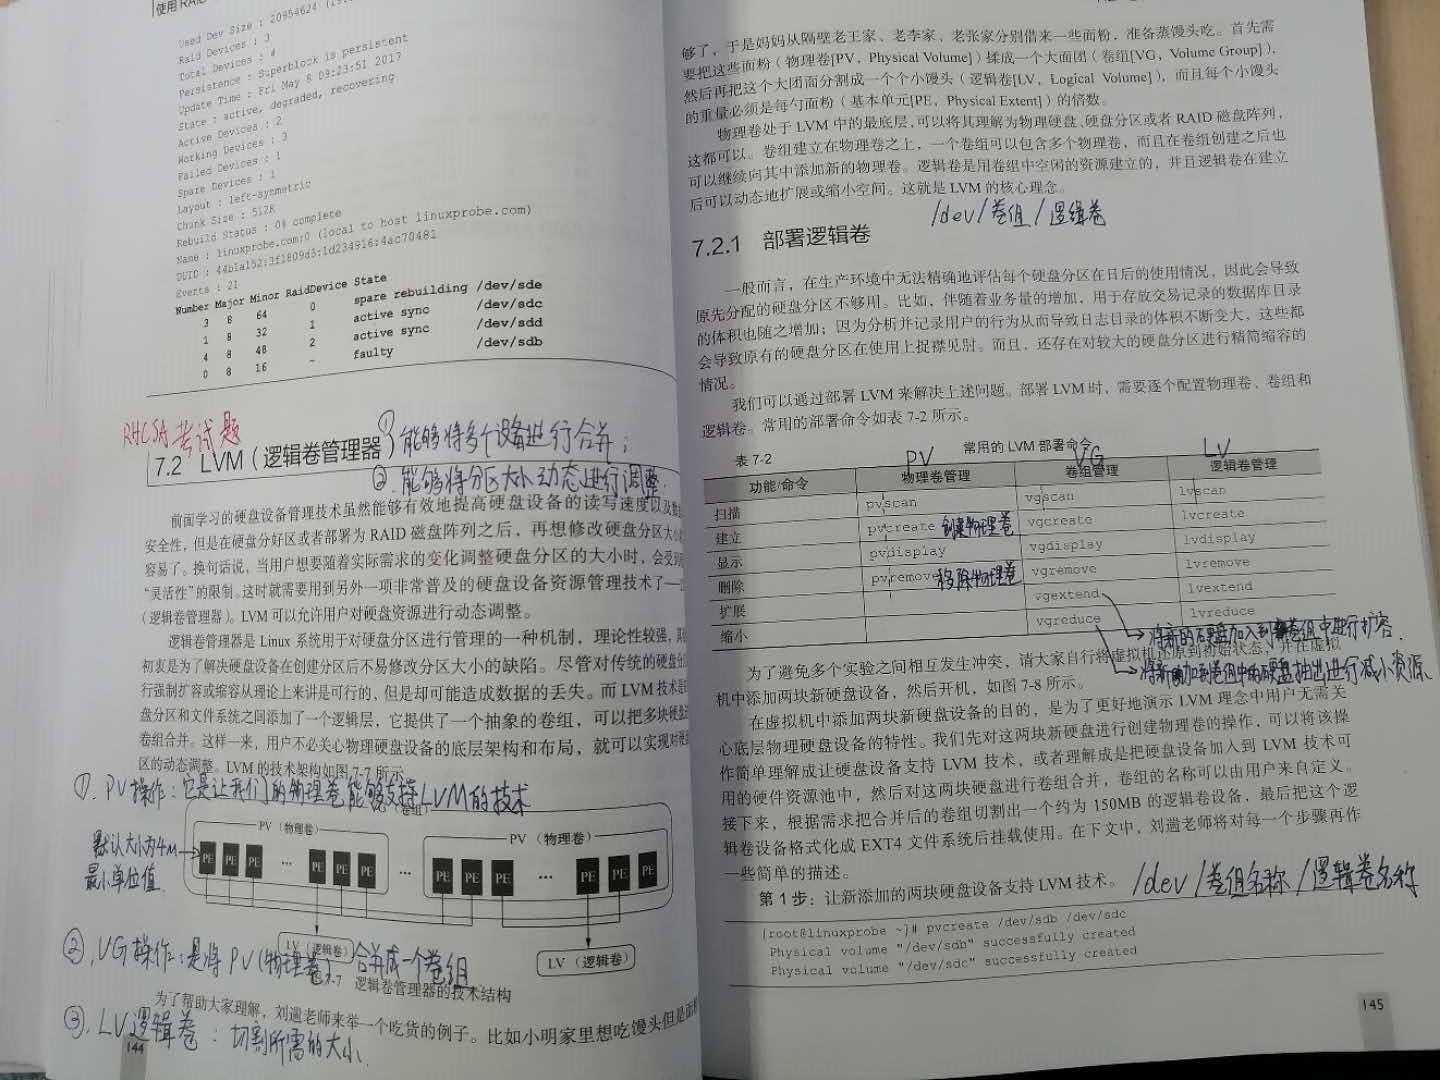 使用 RAID
Used Dev Size : 20954624
Raid Devices : 3
Total Devices : 4
Persistence : Superblock is persistent
Update Time : Fri May 8 09:23:51 2017
State : active, degraded, recovering
Active Devices : 2
Working Devices : 3
Failed Devices : 1
Spare Devices : 1
Layout : left-symmetric
Chunk Size : 512K
Rebuild Status : 0% complete
Name : linuxprobe.com:0 (local to host linuxprobe.com)
UUID : 44b1a152:3f1809d3:1d234916:4ac70481
Events : 21
Number Major Minor RaidDevice State
3 8 64 0 spare rebuilding /dev/sde
1 8 32 1 active sync /dev/sdc
4 8 48 2 active sync /dev/sdd
0 8 16 - faulty /dev/sdb
RHCSA考试题
①能够将多个设备进行合并；
7.2 LVM（逻辑卷管理器）
②.能够将分区大小动态进行调整.
前面学习的硬盘设备管理技术虽然能够有效地提高硬盘设备的读写速度以及数据
安全性，但是在硬盘分好区或者部署为 RAID 磁盘阵列之后，再想修改硬盘分区大小
容易了。换句话说，当用户想要随着实际需求的变化调整硬盘分区的大小时，会受到
“灵活性”的限制。这时就需要用到另外一项非常普及的硬盘设备资源管理技术了—
（逻辑卷管理器）。LVM 可以允许用户对硬盘资源进行动态调整。
逻辑卷管理器是 Linux 系统用于对硬盘分区进行管理的一种机制，理论性较强，其
初衷是为了解决硬盘设备在创建分区后不易修改分区大小的缺陷。尽管对传统的硬盘分
行强制扩容或缩容从理论上来讲是可行的，但是却可能造成数据的丢失。而 LVM 技术是
盘分区和文件系统之间添加了一个逻辑层，它提供了一个抽象的卷组，可以把多块硬盘
卷组合并。这样一来，用户不必关心物理硬盘设备的底层架构和布局，就可以实现对硬
区的动态调整。LVM 的技术架构如图 7-7 所示
①. PV操作：它是让我们的物理卷能够支持LVM的技术
卷组
PV（物理卷）
PV（物理卷）
默认大小为4M
最小单位值.
PE PE PE … PE PE PE … PE PE PE … PE PE PE
LV（逻辑卷）
LV（逻辑卷）
②. VG操作：是将PV(物理卷)合并成一个卷组
7-7 逻辑卷管理器的技术结构
为了帮助大家理解，刘遄老师来举一个吃货的例子。比如小明家里想吃馒头但是面粉
③. LV逻辑卷：切割所需的大小.
144
够了，于是妈妈从隔壁老王家、老李家、老张家分别借来一些面粉，准备蒸馒头吃。首先需
要把这些面粉（物理卷[PV，Physical Volume]）揉成一个大面团（卷组[VG，Volume Group]），
然后再把这个大团面分割成一个个小馒头（逻辑卷[LV，Logical Volume]），而且每个小馒头
的重量必须是每勺面粉（基本单元[PE，Physical Extent]）的倍数。
物理卷处于 LVM 中的最底层，可以将其理解为物理硬盘、硬盘分区或者 RAID 磁盘阵列，
这都可以。卷组建立在物理卷之上，一个卷组可以包含多个物理卷，而且在卷组创建之后也
可以继续向其中添加新的物理卷。逻辑卷是用卷组中空闲的资源建立的，并且逻辑卷在建立
后可以动态地扩展或缩小空间。这就是 LVM 的核心理念。
/dev/卷组/逻辑卷
7.2.1 部署逻辑卷
一般而言，在生产环境中无法精确地评估每个硬盘分区在日后的使用情况，因此会导致
原先分配的硬盘分区不够用。比如，伴随着业务量的增加，用于存放交易记录的数据库目录
的体积也随之增加；因为分析并记录用户的行为从而导致日志目录的体积不断变大，这些都
会导致原有的硬盘分区在使用上捉襟见肘。而且，还存在对较大的硬盘分区进行精简缩容的
情况。
我们可以通过部署 LVM 来解决上述问题。部署 LVM 时，需要逐个配置物理卷、卷组和
逻辑卷。常用的部署命令如表 7-2 所示。
表 7-2 常用的 LVM 部署命令
PV VG LV
功能/命令 物理卷管理 卷组管理 逻辑卷管理
扫描 pvscan vgscan lvscan
建立 pvcreate 创建物理卷 vgcreate lvcreate
显示 pvdisplay vgdisplay lvdisplay
删除 pvremove 移除物理卷 vgremove lvremove
扩展 vgextend lvextend
缩小 vgreduce lvreduce
将新的硬盘加入到卷组中进行扩容.
为了避免多个实验之间相互发生冲突，请大家自行将虚拟机还原到初始状态，并在虚拟
将新加到卷组中的硬盘抽出进行减小资源
机中添加两块新硬盘设备，然后开机，如图 7-8 所示。
在虚拟机中添加两块新硬盘设备的目的，是为了更好地演示 LVM 理念中用户无需关
心底层物理硬盘设备的特性。我们先对这两块新硬盘进行创建物理卷的操作，可以将该操
作简单理解成让硬盘设备支持 LVM 技术，或者理解成是把硬盘设备加入到 LVM 技术可
用的硬件资源池中，然后对这两块硬盘进行卷组合并，卷组的名称可以由用户来自定义。
接下来，根据需求把合并后的卷组切割出一个约为 150MB 的逻辑卷设备，最后把这个逻
辑卷设备格式化成 EXT4 文件系统后挂载使用。在下文中，刘遄老师将对每一个步骤再作
一些简单的描述。
第 1 步：让新添加的两块硬盘设备支持 LVM 技术。
/dev/卷组名称/逻辑卷名称
[root@linuxprobe ~]# pvcreate /dev/sdb /dev/sdc
Physical volume "/dev/sdb" successfully created
Physical volume "/dev/sdc" successfully created
145